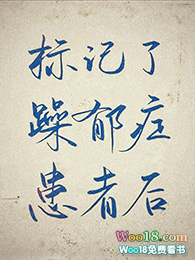 标记了
躁郁症
患者后
Woo18.com
Woo18免费看书